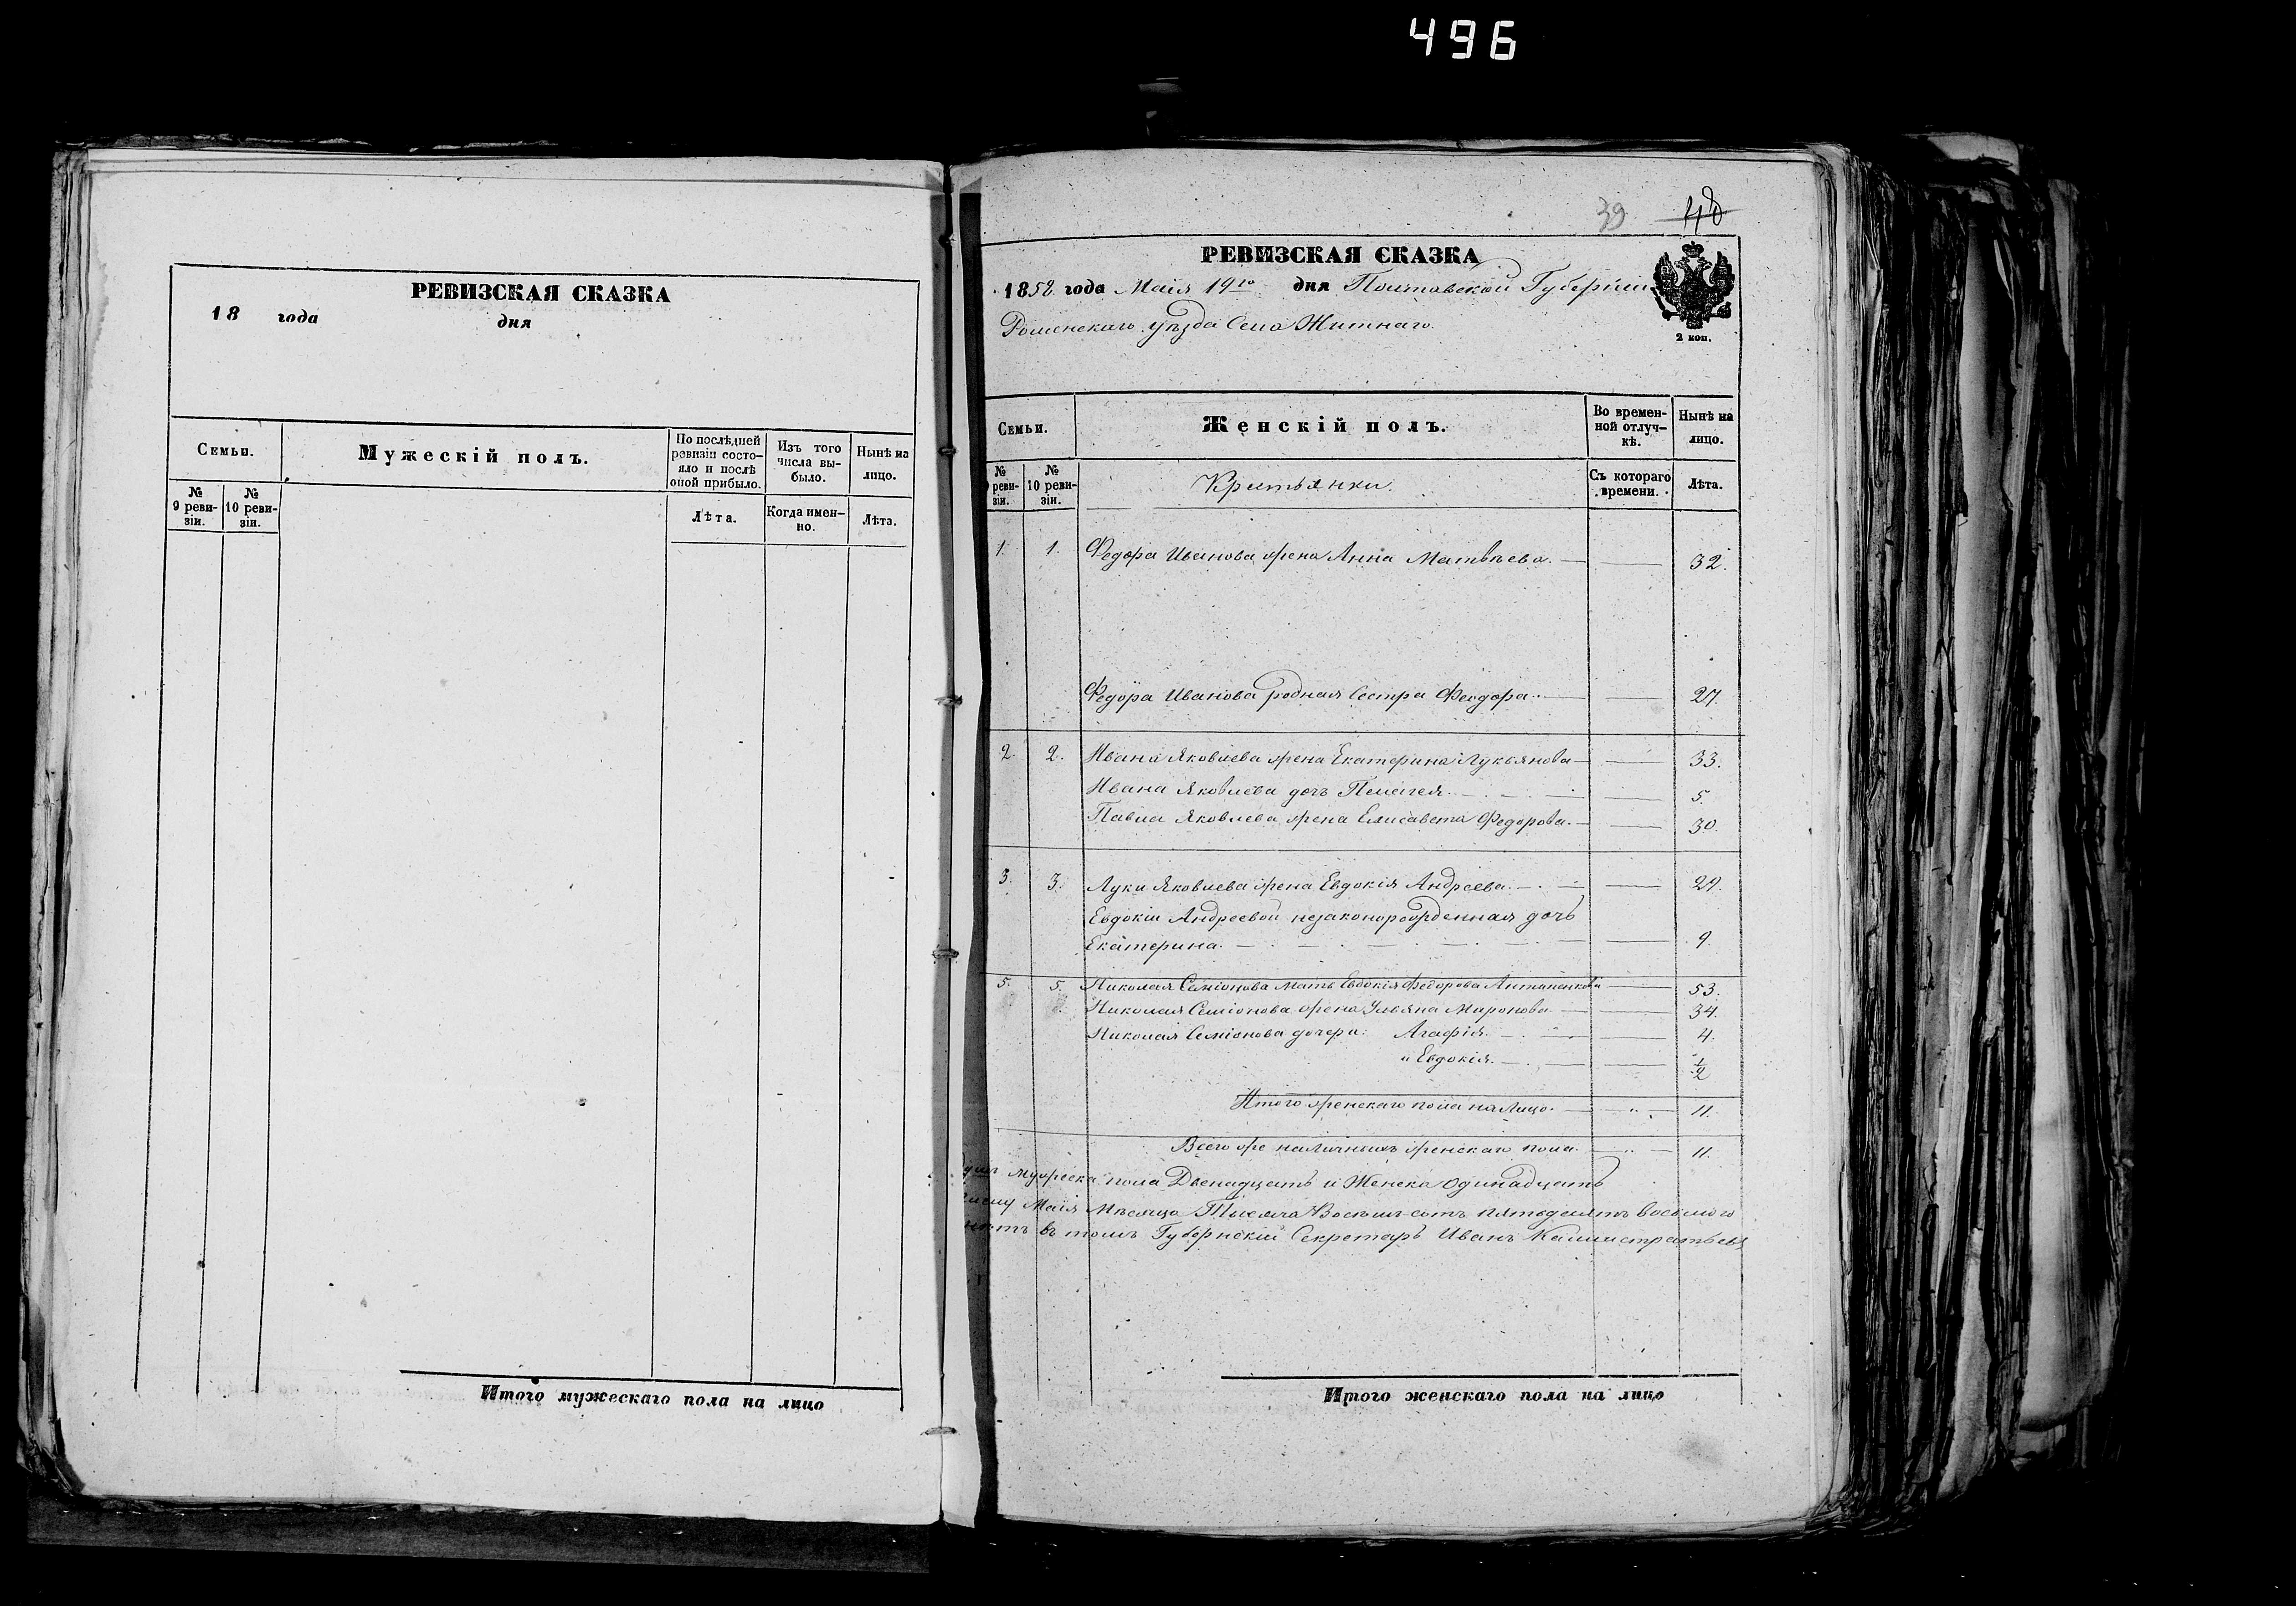 496
РЕВИЗСКАЯ СКАЗКА
18 года дня
Семьи.
Мужескій полъ.
По послѣдней ревизіи состояло и послѣ оной прибыло.
Изъ того числа выбыло.
Нынѣ на лицо.
№ 9 ревизіи.
№ 10 ревизіи.
Лѣта.
Когда именно.
Лѣта.
Итого мужескаго пола на лицо
39 48
РЕВИЗСКАЯ СКАЗКА
1858 года Маія 19го дня Полтавской Губерніи
Роменскаго уѣзда Села Житнаго.
2 коп.
Семьи.
Женскій полъ.
Во временной отлучкѣ.
Нынѣ на лицо.
№ ревизіи.
№ 10 ревизіи.
Крестьянки.
Съ котораго времени.
Лѣта.
1. 1. Федора Иванова жена Анна Матвѣева. 32.
Федора Иванова родная Сестра Феодора. 27.
2. 2. Ивана Яковлева жена Екатерина Лукьянова 33.
Ивана Яковлева дочь Пелагея. 5.
Павла Яковлева жена Елисавета Федорова. 30.
3. 3. Луки Яковлева жена Евдокія Андреева. 29.
Евдокіи Андреевой незаконорожденная дочь
Екатерина. 9.
5. 5. Николая Семіонова мать Евдокія Федорова 53.
Николая Семіонова жена Ульяна Миронова 34.
Николая Семіонова дочери: Агафія. 4.
и Евдокія. 1/2
Итого женскаго пола на лицо. 11.
Всего же наличныхъ женскаго пола. 11.
мужеска пола Двенадцать и Женска одинадцать
Маія Мѣсяца Тысяча Восемь сотъ пятьдесятъ восьмого
въ томъ Губернскій Секретарь Иванъ Калистратьевъ
Итого женскаго пола на лицо